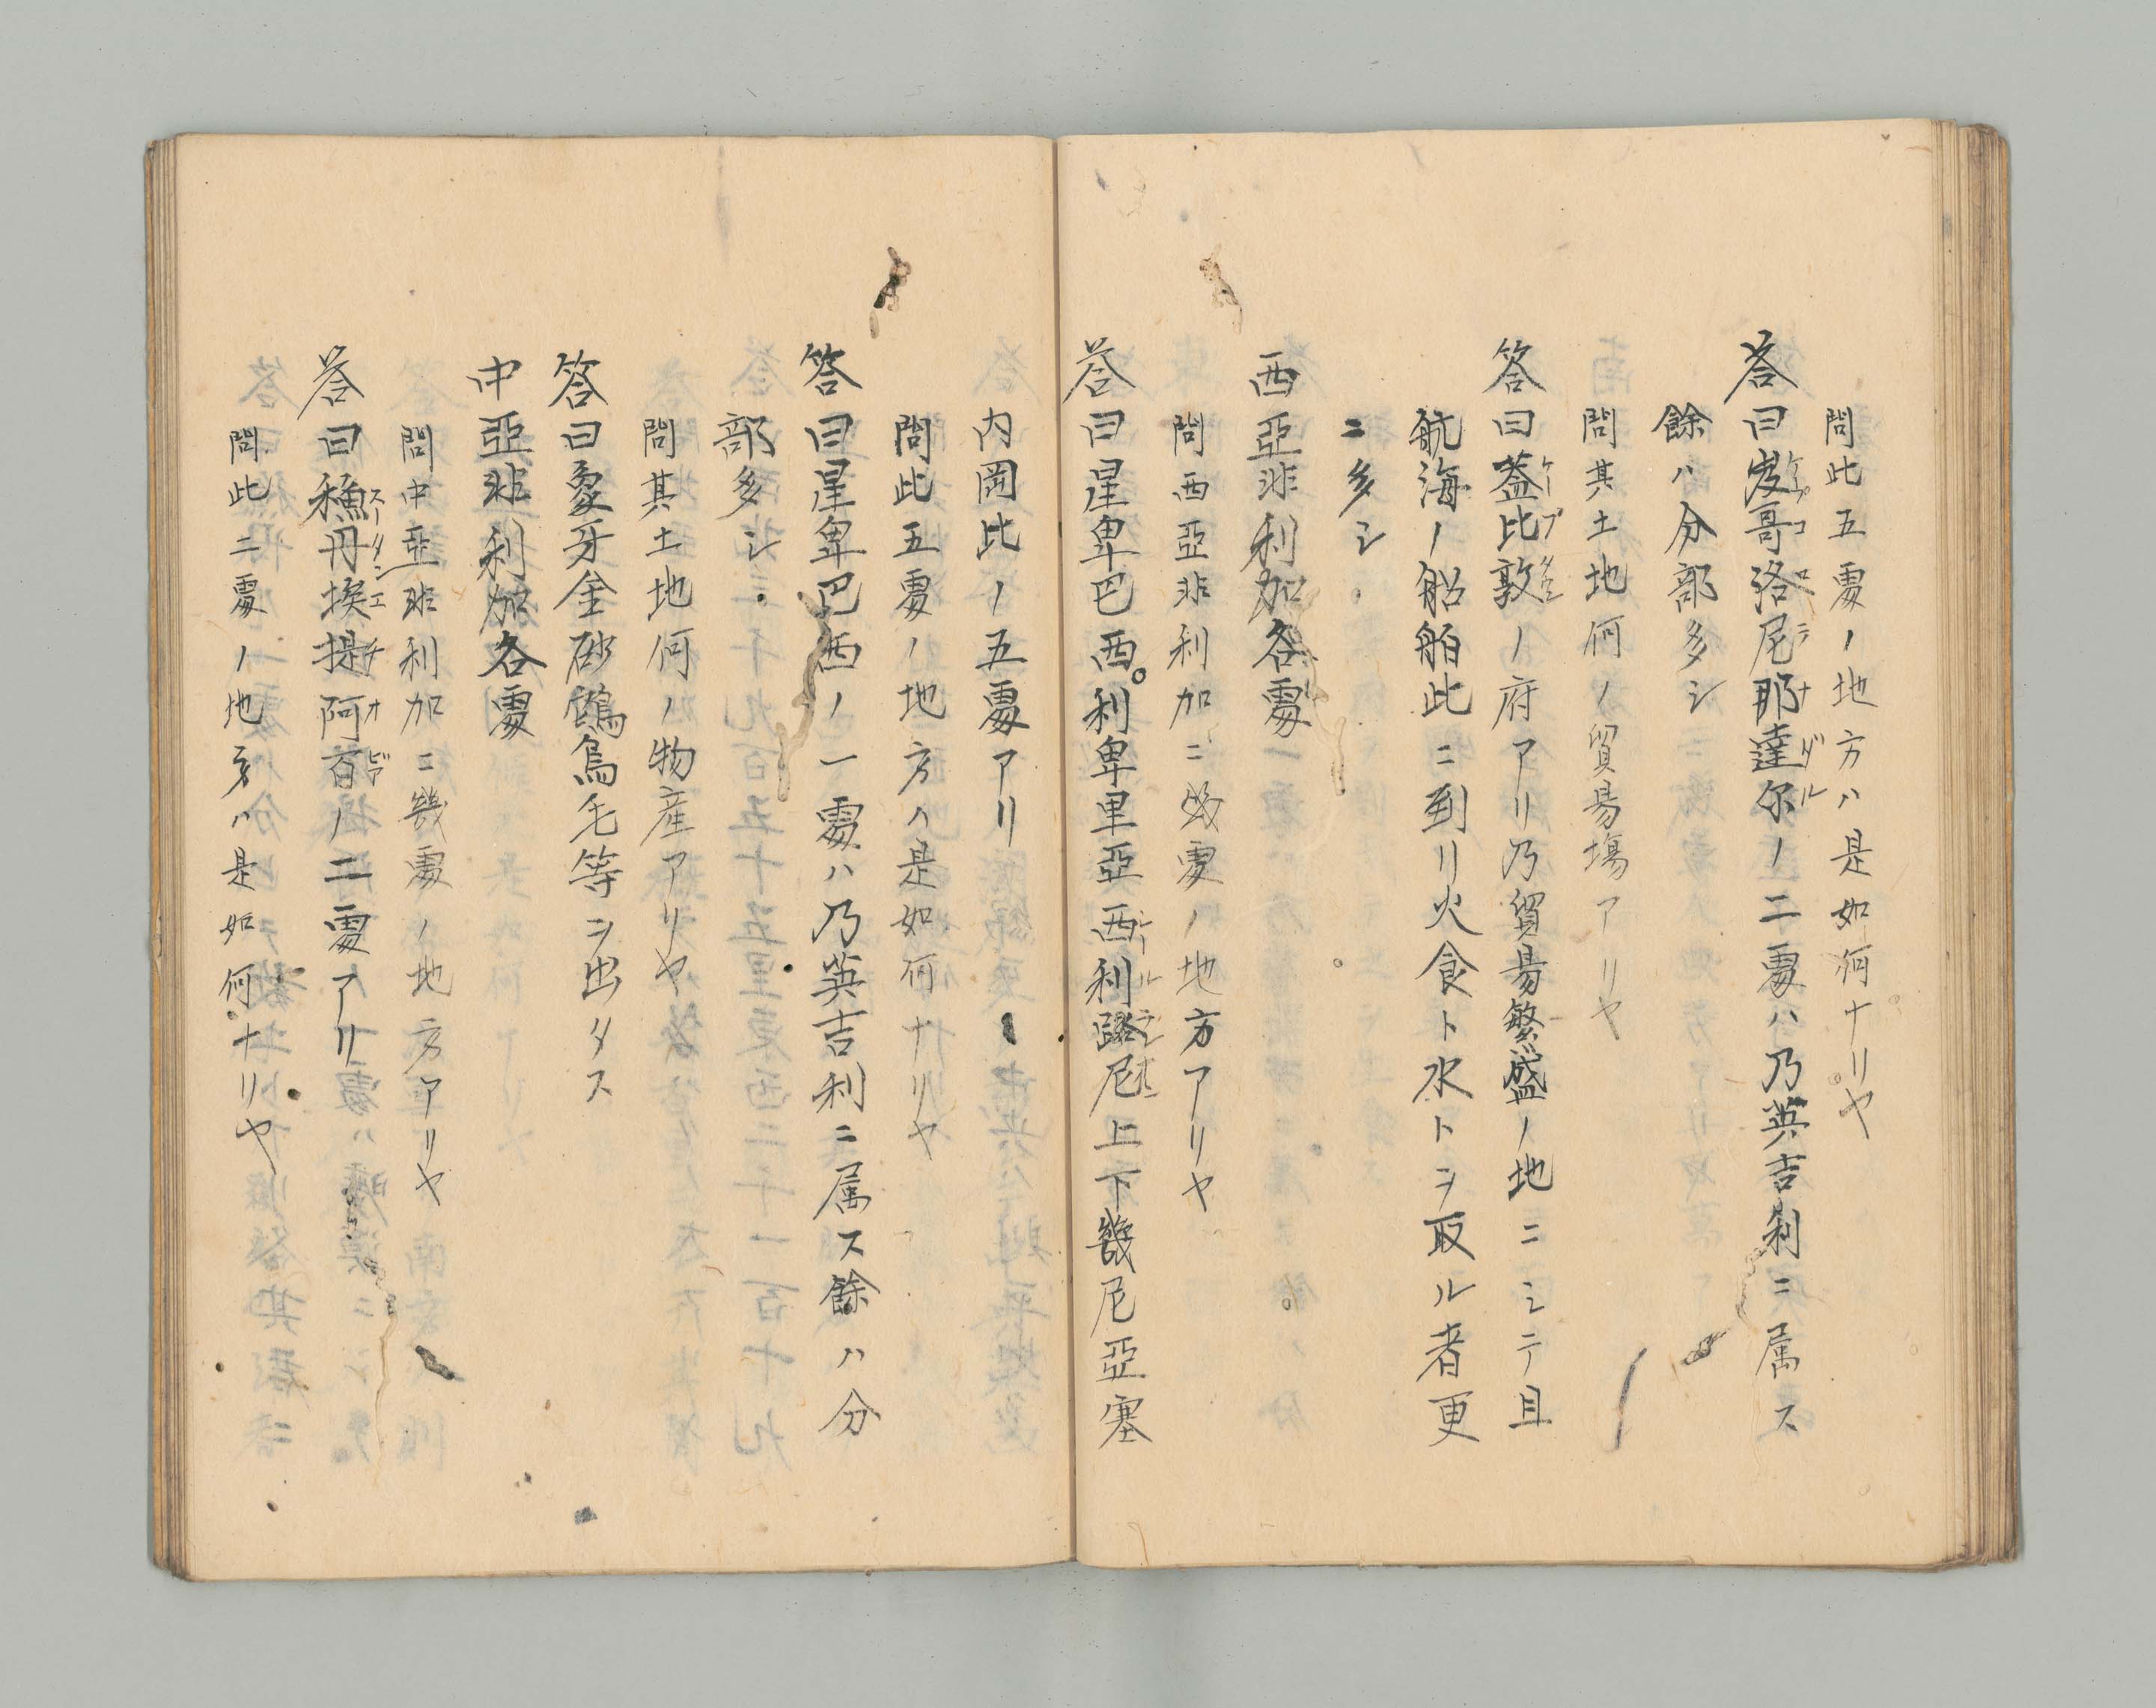 問此五處ノ地方ハ是如何ナリヤ
答曰岌哥洛尼那達尔ノ二處ハ乃英吉利ニ属ス
餘ハ分部多シ
問其土地何ノ貿易塲アリヤ
答曰蓋比敦ノ府アリ乃貿易繁盛ノ地ニシテ且
航海ノ船舶此ニ到リ火食ト水トヲ取ル者更
ニ多シ
西亞非利加各處
問西亞非利加ニ幾處ノ地方アリヤ
答曰星卑巴西。利卑里亞西利路尼上下幾尼亞塞
内岡比ノ五處アリ
問此五處ノ地方ハ是如何ナリヤ
答曰星卑巴西ノ一處ハ乃英吉利ニ属ス餘ハ分
部多シ
問其土地何ノ物産アリヤ
答曰象牙金砂鴕鳥毛等ヲ出タス
中亞非利加各處
問中亞非利加ニ幾處ノ地方アリヤ
答曰穌丹挨提阿百ノ二處アリ
問此二處ノ地方ハ是如何ナリヤ